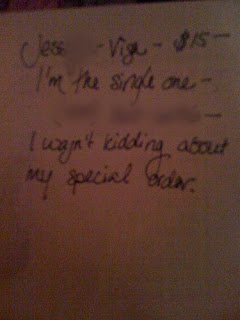 Jess - Visa - $15 —
I'm the single one -
—
I wasn't kidding about
my special order.